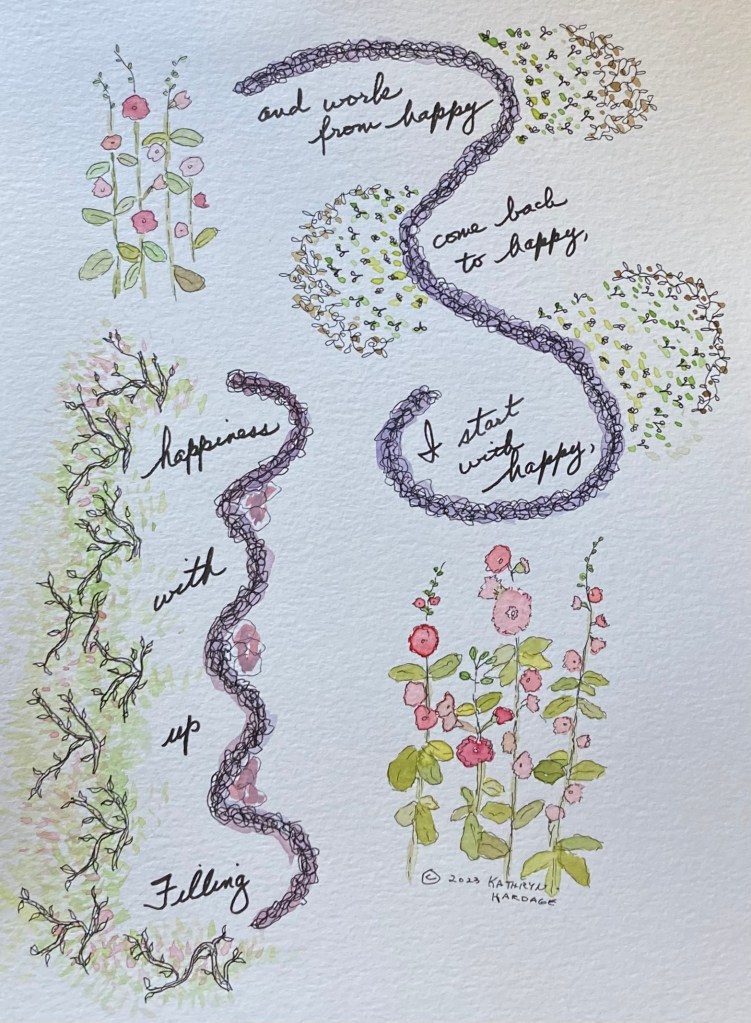 Filling
up
with
happiness
I start
with
happy,
come back
to happy,
and work
from happy
© 2023 KATHRYN
HARDAGE